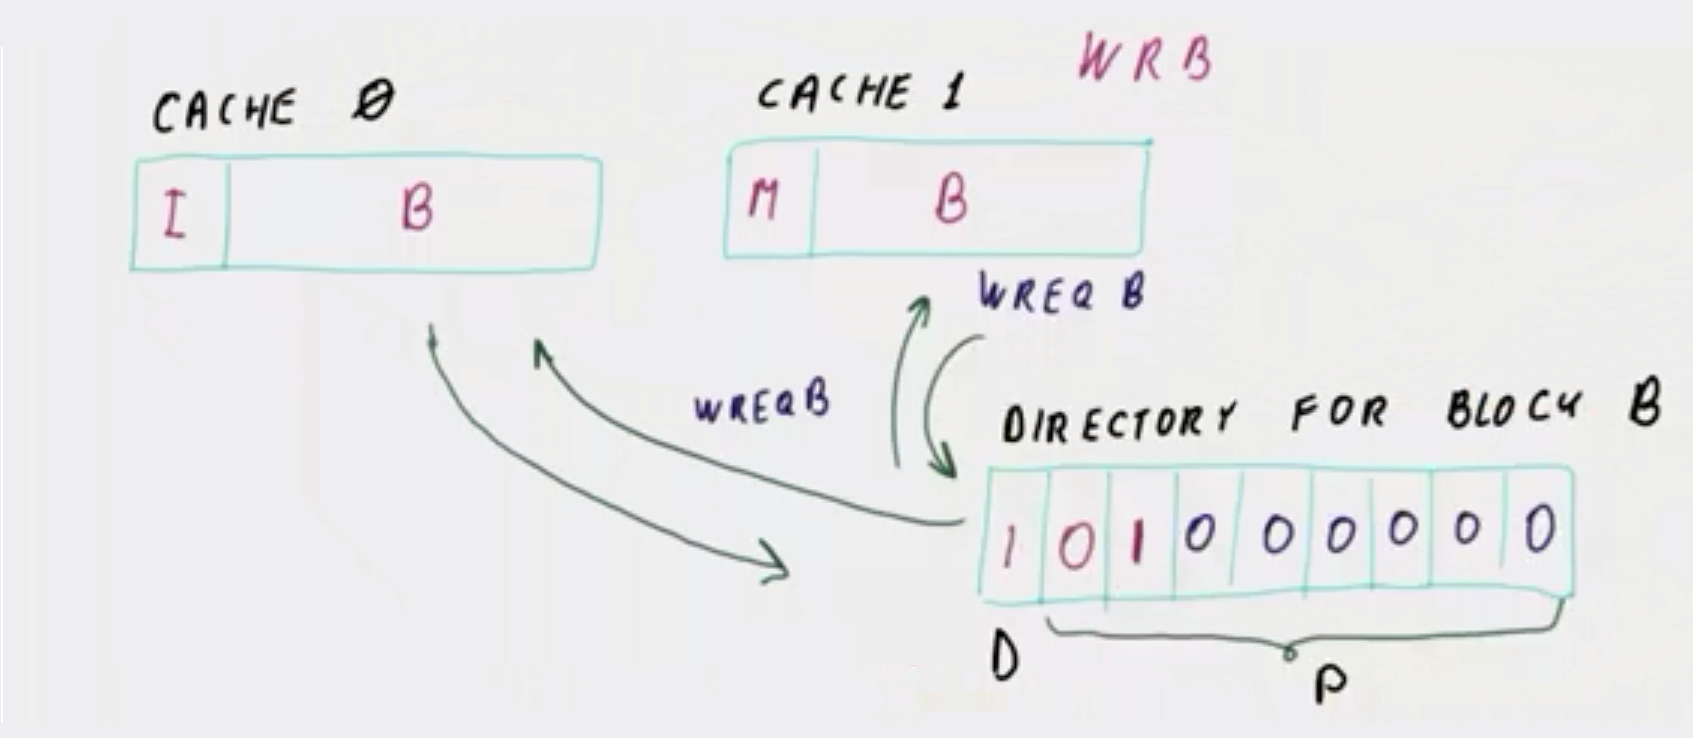 WRB
CACHE 0
CACHE 1
I B
M B
WREQ B
WREQB
DIRECTORY FOR BLOCK B
1 0 1 0 0 0 0 0 0
D
P